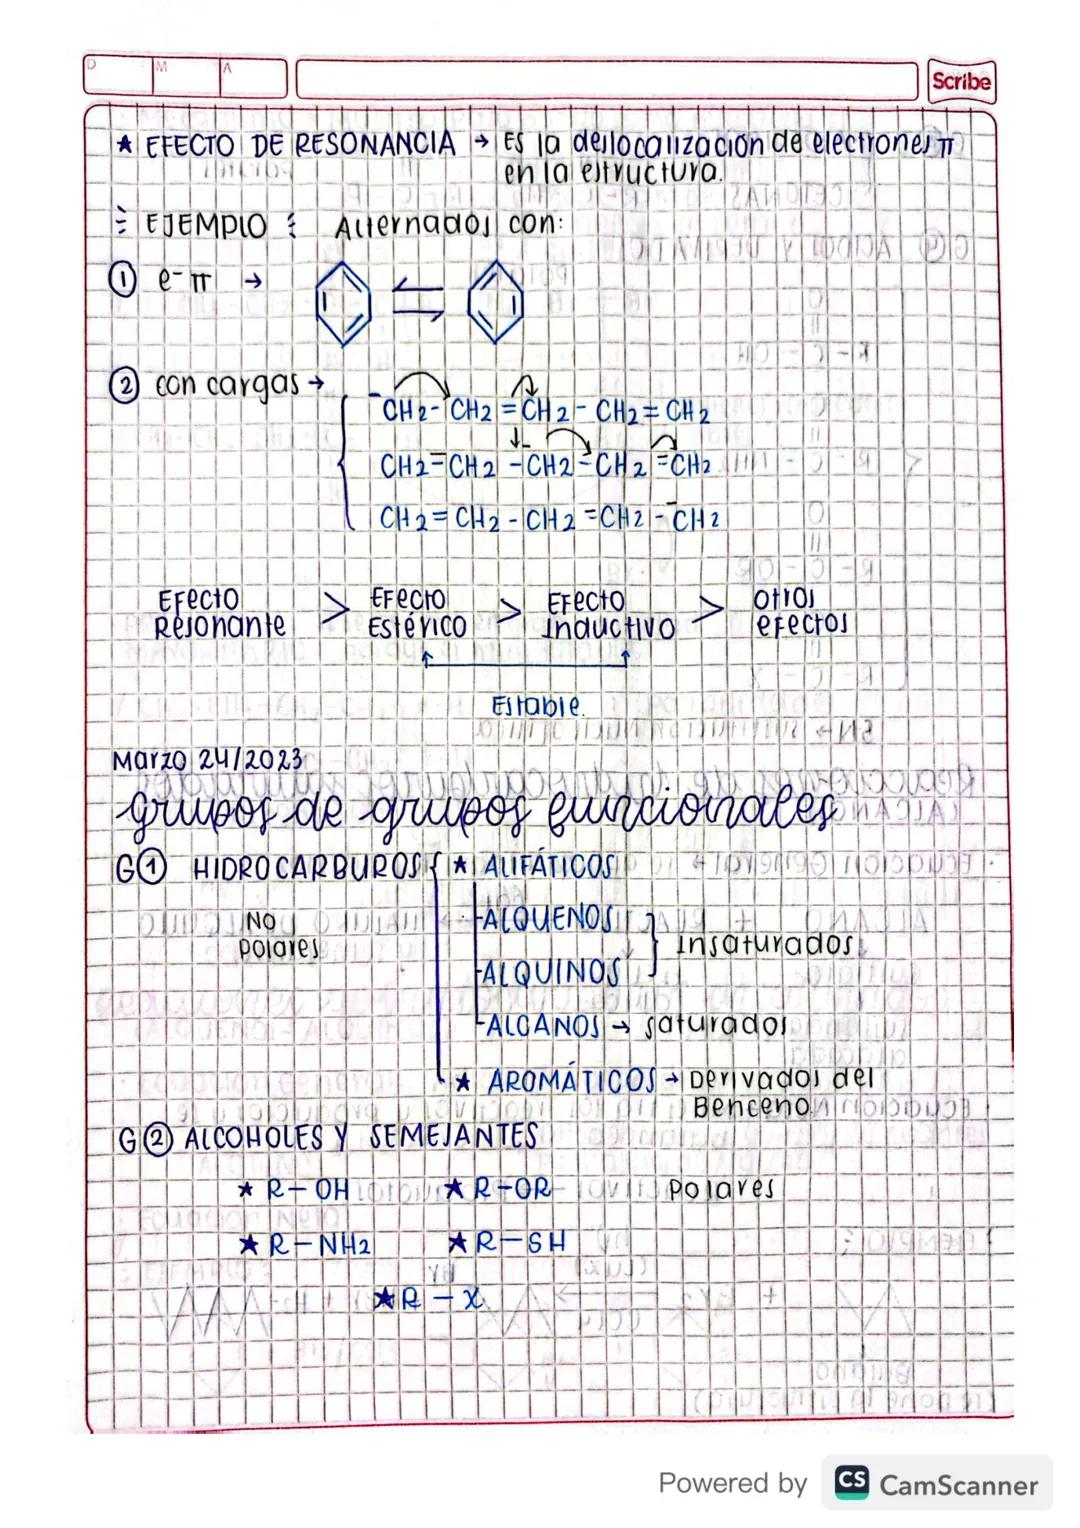 D M A
Scribe
★ EFECTO DE RESONANCIA → Es la deslocalización de electrones π
en la estructura.
EJEMPLO Alternados con:
① e⁻π →
② con cargas →
⁻CH2-CH2=CH2-CH2=CH2
CH2=CH2-CH2-CH2=CH2
CH2=CH2-CH2=CH2-⁻CH2
Efecto Resonante > Efecto Estérico > Efecto Inductivo > otros efectos
Estable.
Marzo 24/2023
grupos de grupos funcionales
G① HIDROCARBUROS { ★ ALIFÁTICOS
No polares
-ALQUENOS
-ALQUINOS
} Insaturados
-ALCANOS → saturados
★ AROMÁTICOS → Derivados del
Benceno
G② ALCOHOLES Y SEMEJANTES
★ R-OH ★ R-OR Polares
★ R-NH2 ★ R-SH
★ R-X
Powered by CS CamScanner